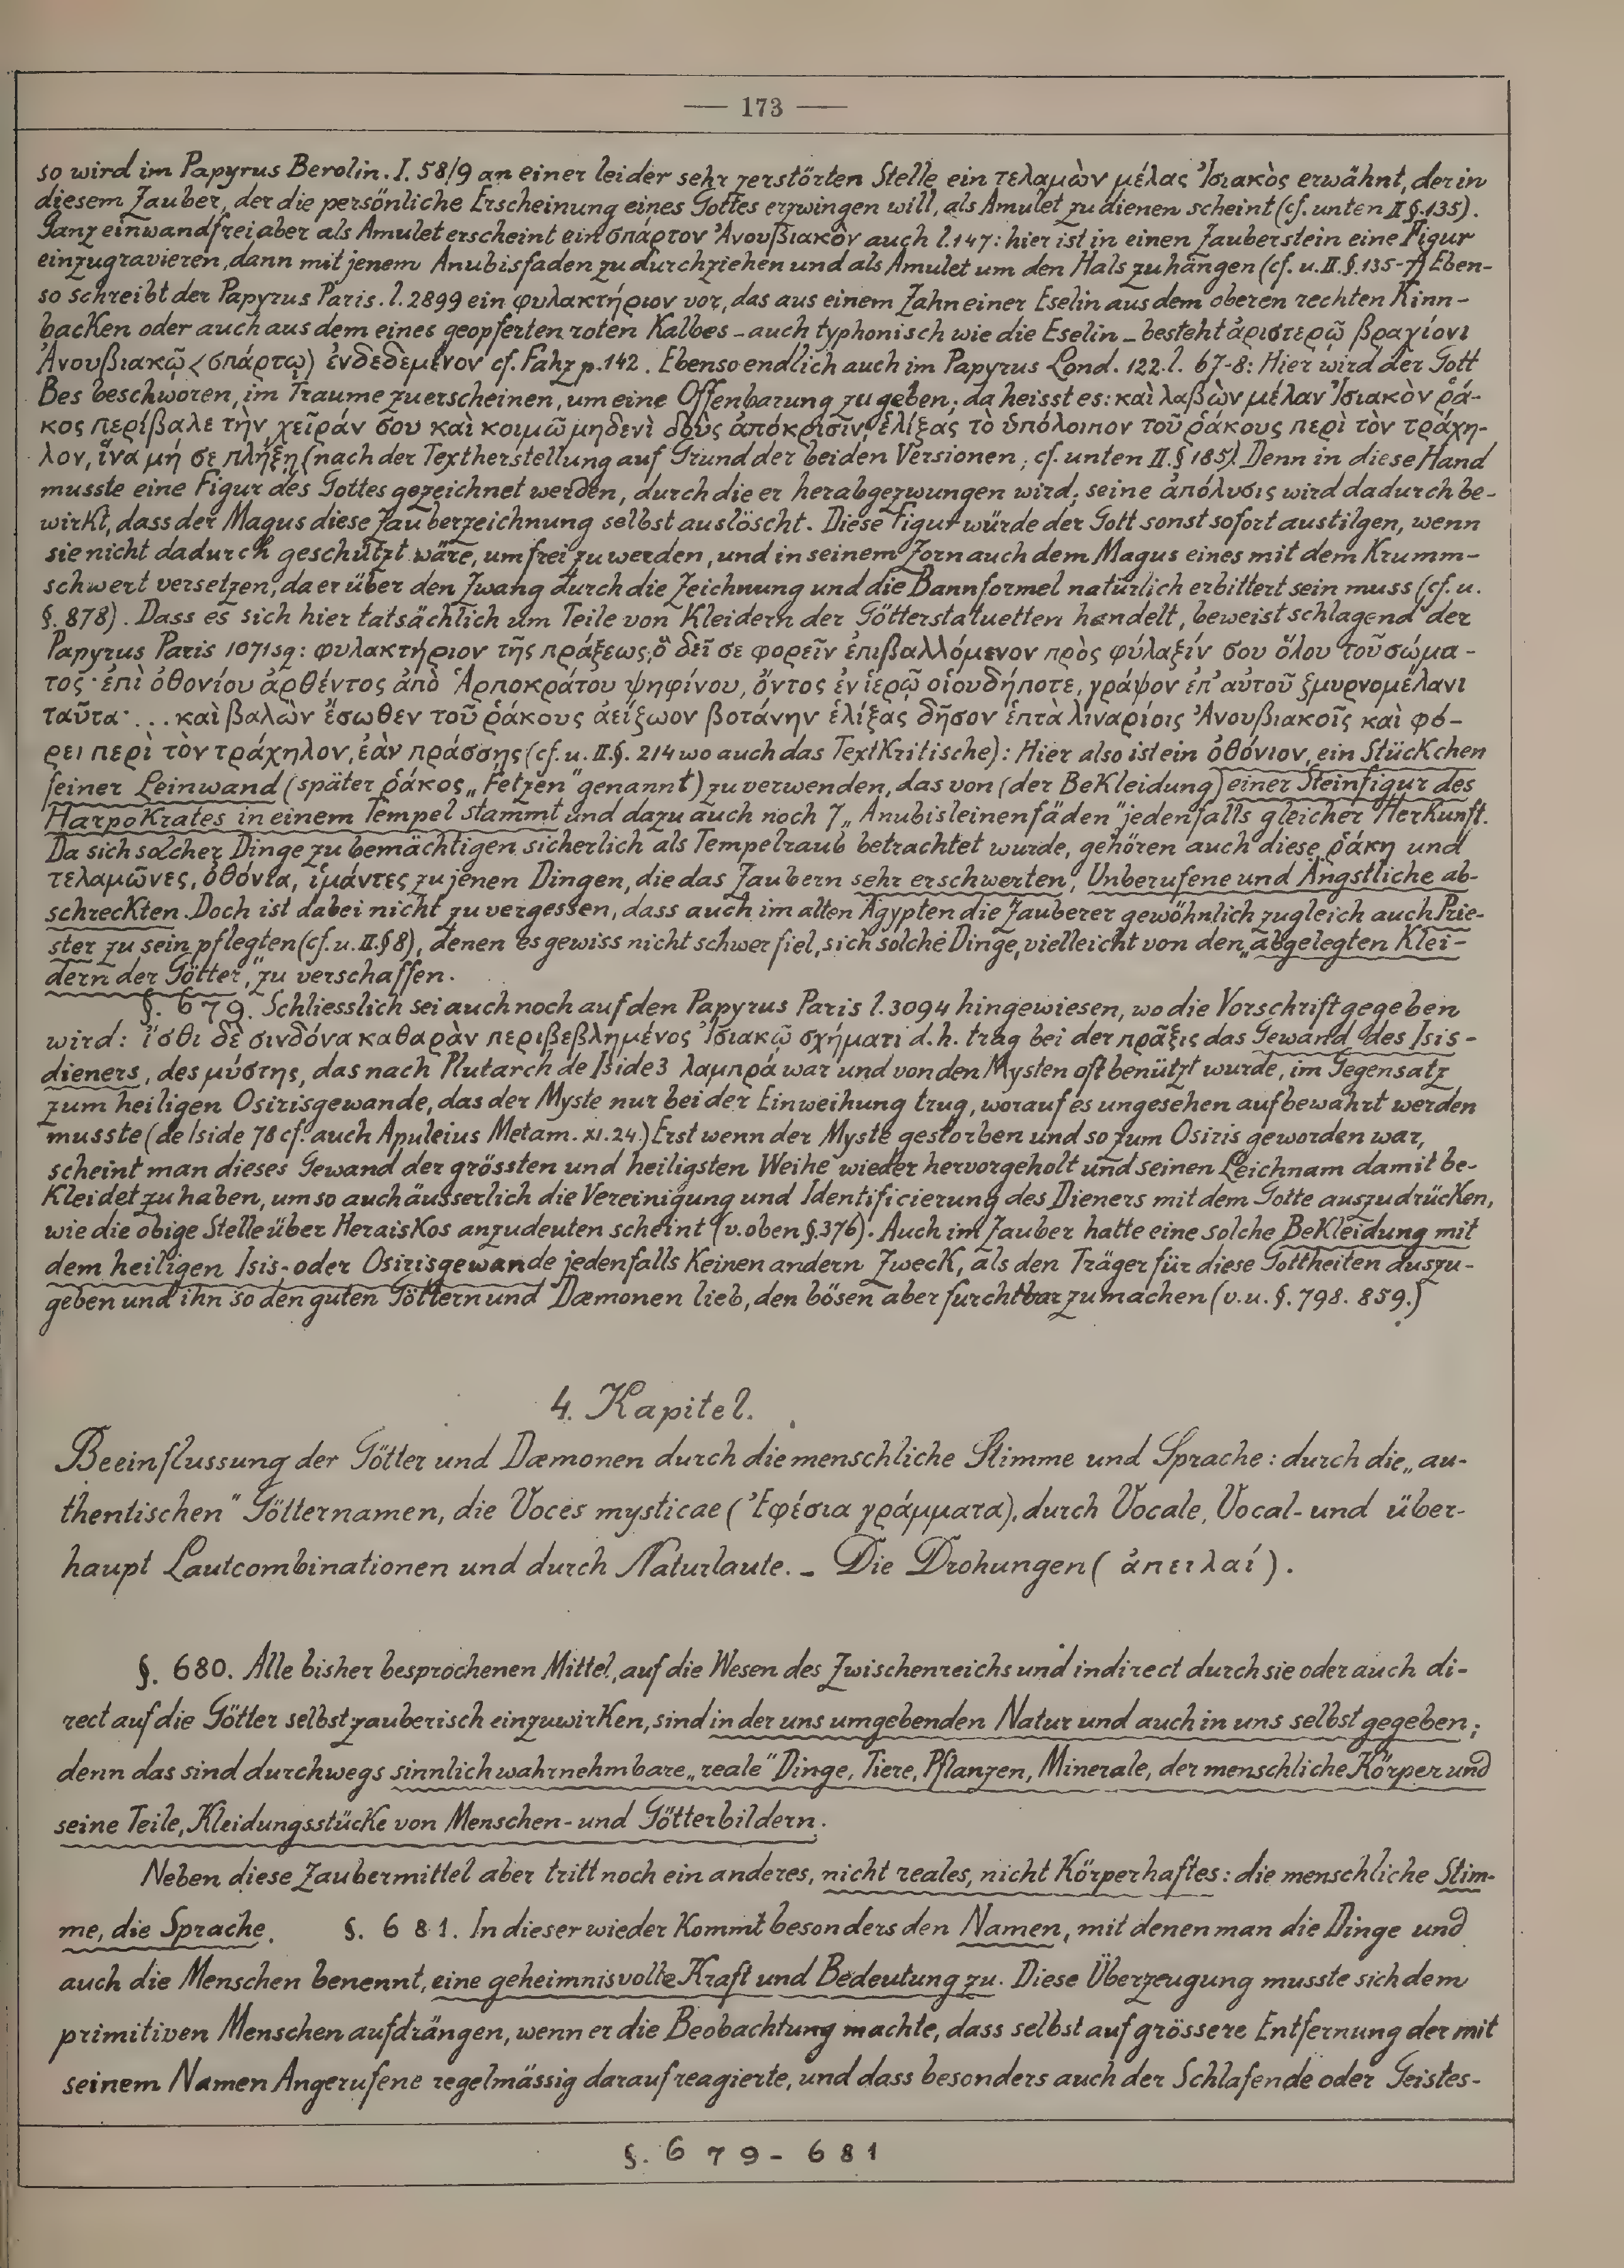 — 173 —
so wird im Papyrus Berolin. I. 58/9 an einer leider sehr zerstörten Stelle ein τελαμὼν μέλας Ἰσιακὸς erwähnt, der in
diesem Zauber, der die persönliche Erscheinung eines Gottes erzwingen will, als Amulet zu dienen scheint (cf. unten II §.135).
Ganz einwandfrei aber als Amulet erscheint ein σπάρτον Ἀνουβιακὸν auch l.147: hier ist in einen Zauberstein eine Figur
einzugravieren, dann mit jenem Anubisfaden zu durchziehen und als Amulet um den Hals zu hängen (cf. u. II. §. 135-7) Eben-
so schreibt der Papyrus Paris. l. 2899 ein φυλακτήριον vor, das aus einem Zahn einer Eselin aus dem oberen rechten Kinn-
backen oder auch aus dem eines geopferten roten Kalbes – auch typhonisch wie die Eselin – besteht ἀριστερῷ βραχίονι
Ἀνουβιακῷ <σπάρτῳ) ἐνδεδεμένον cf. Fahz p. 142. Ebenso endlich auch im Papyrus Lond. 122. l. 67-8: Hier wird der Gott
Bes beschworen, im Traume zu erscheinen, um eine Offenbarung zu geben; da heisst es: καὶ λαβὼν μέλαν Ἰσιακὸν ῥά-
κος περίβαλε τὴν χεῖράν σου καὶ κοιμῶ μηδενὶ δοὺς ἀπόκρισιν, ἑλίξας τὸ ὑπόλοιπον τοῦ ῥάκους περὶ τὸν τράχη-
λον, ἵνα μή σε πλήξῃ (nach der Textherstellung auf Grund der beiden Versionen; cf. unten II. § 185). Denn in diese Hand
musste eine Figur des Gottes gezeichnet werden, durch die er herabgezwungen wird; seine ἀπόλυσις wird dadurch be-
wirkt, dass der Magus diese Zauberzeichnung selbst auslöscht. Diese Figur würde der Gott sonst sofort austilgen, wenn
sie nicht dadurch geschützt wäre, um frei zu werden, und in seinem Zorn auch dem Magus eines mit dem Krumm-
schwert versetzen, da er über den Zwang durch die Zeichnung und die Bannformel natürlich erbittert sein muss (cf. u.
§. 878). Dass es sich hier tatsächlich um Teile von Kleidern der Götterstatuetten handelt, beweist schlagend der
Papyrus Paris 1071sq: φυλακτήριον τῆς πράξεως, ὃ δεῖ σε φορεῖν ἐπιβαλλόμενον πρὸς φύλαξίν σου ὅλου τοῦ σώμα-
τος· ἐπὶ ὀθονίου ἀρθέντος ἀπὸ Ἁρποκράτου ψηφίνου, ὄντος ἐν ἱερῷ οἱουδήποτε, γράψον ἐπ' αὐτοῦ ζμυρνομέλανι
ταῦτα· ... καὶ βαλὼν ἔσωθεν τοῦ ῥάκους ἀείζωον βοτάνην ἑλίξας δῆσον ἑπτὰ λιναρίοις Ἀνουβιακοῖς καὶ φό-
ρει περὶ τὸν τράχηλον, ἐὰν πράσσῃς (cf. u. II. §. 214 wo auch das Textkritische): Hier also ist ein ὀθόνιον, ein Stückchen
feiner Leinwand (später ῥάκος „Fetzen" genannt) zu verwenden, das von (der Bekleidung) einer Steinfigur des
Harpokrates in einem Tempel stammt und dazu auch noch 7 „Anubisleinenfäden" jedenfalls gleicher Herkunft.
Da sich solcher Dinge zu bemächtigen sicherlich als Tempelraub betrachtet wurde, gehören auch diese ῥάκη und
τελαμῶνες, ὀθόνια, ἱμάντες zu jenen Dingen, die das Zaubern sehr erschwerten, Unberufene und Ängstliche ab-
schreckten. Doch ist dabei nicht zu vergessen, dass auch im alten Ägypten die Zauberer gewöhnlich zugleich auch Prie-
ster zu sein pflegten (cf. u. II. § 8), denen es gewiss nicht schwer fiel, sich solche Dinge, vielleicht von den „abgelegten Klei-
dern der Götter," zu verschaffen.
§. 679. Schliesslich sei auch noch auf den Papyrus Paris l. 3094 hingewiesen, wo die Vorschrift gegeben
wird: ἴσθι δὲ σινδόνα καθαρὰν περιβεβλημένος Ἰσιακῷ σχήματι d. h. trag bei der πρᾶξις das Gewand des Isis-
dieners, des μύστης, das nach Plutarch de Iside 3 λαμπρά war und von den Mysten oft benützt wurde, im Gegensatz
zum heiligen Osirisgewande, das der Myste nur bei der Einweihung trug, worauf es ungesehen aufbewahrt werden
musste (de Iside 78 cf. auch Apuleius Metam. XI. 24.) Erst wenn der Myste gestorben und so zum Osiris geworden war,
scheint man dieses Gewand der grössten und heiligsten Weihe wieder hervorgeholt und seinen Leichnam damit be-
kleidet zu haben, um so auch äusserlich die Vereinigung und Identificierung des Dieners mit dem Gotte auszudrücken,
wie die obige Stelle über Heraiskos anzudeuten scheint (v. oben §. 376). Auch im Zauber hatte eine solche Bekleidung mit
dem heiligen Isis- oder Osirisgewande jedenfalls keinen andern Zweck, als den Träger für diese Gottheiten auszu-
geben und ihn so den guten Göttern und Dæmonen lieb, den bösen aber furchtbar zu machen (v. u. §. 798. 859.)
4. Kapitel.
Beeinflussung der Götter und Dæmonen durch die menschliche Stimme und Sprache: durch die „au-
thentischen" Götternamen, die Voces mysticae (Ἐφέσια γράμματα), durch Vocale, Vocal- und über-
haupt Lautcombinationen und durch Naturlaute. – Die Drohungen (ἀπειλαί).
§. 680. Alle bisher besprochenen Mittel, auf die Wesen des Zwischenreichs und indirect durch sie oder auch di-
rect auf die Götter selbst zauberisch einzuwirken, sind in der uns umgebenden Natur und auch in uns selbst gegeben;
denn das sind durchwegs sinnlich wahrnehmbare „reale" Dinge, Tiere, Pflanzen, Minerale, der menschliche Körper und
seine Teile, Kleidungsstücke von Menschen- und Götterbildern.
Neben diese Zaubermittel aber tritt noch ein anderes, nicht reales, nicht Körperhaftes: die menschliche Stim-
me, die Sprache. §. 681. In dieser wieder kommt besonders den Namen, mit denen man die Dinge und
auch die Menschen benennt, eine geheimnisvolle Kraft und Bedeutung zu. Diese Überzeugung musste sich dem
primitiven Menschen aufdrängen, wenn er die Beobachtung machte, dass selbst auf grössere Entfernung der mit
seinem Namen Angerufene regelmässig darauf reagierte, und dass besonders auch der Schlafende oder Geistes-
§. 679-681